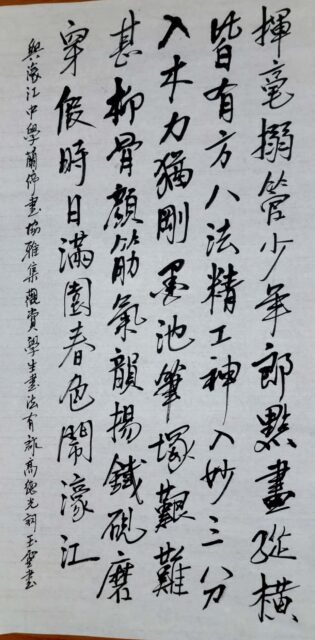 揮毫搦管少年郎點畫縱橫
皆有方八法精工神入妙三分
入木力猶剛墨池筆塚艱難
甚柳骨顏筋氣韻揚鐵硯磨
穿假時日滿園春色鬧濠江
與濠江中學蘭亭書協雅集觀賞學生書法有詠高德光詞玉雲書